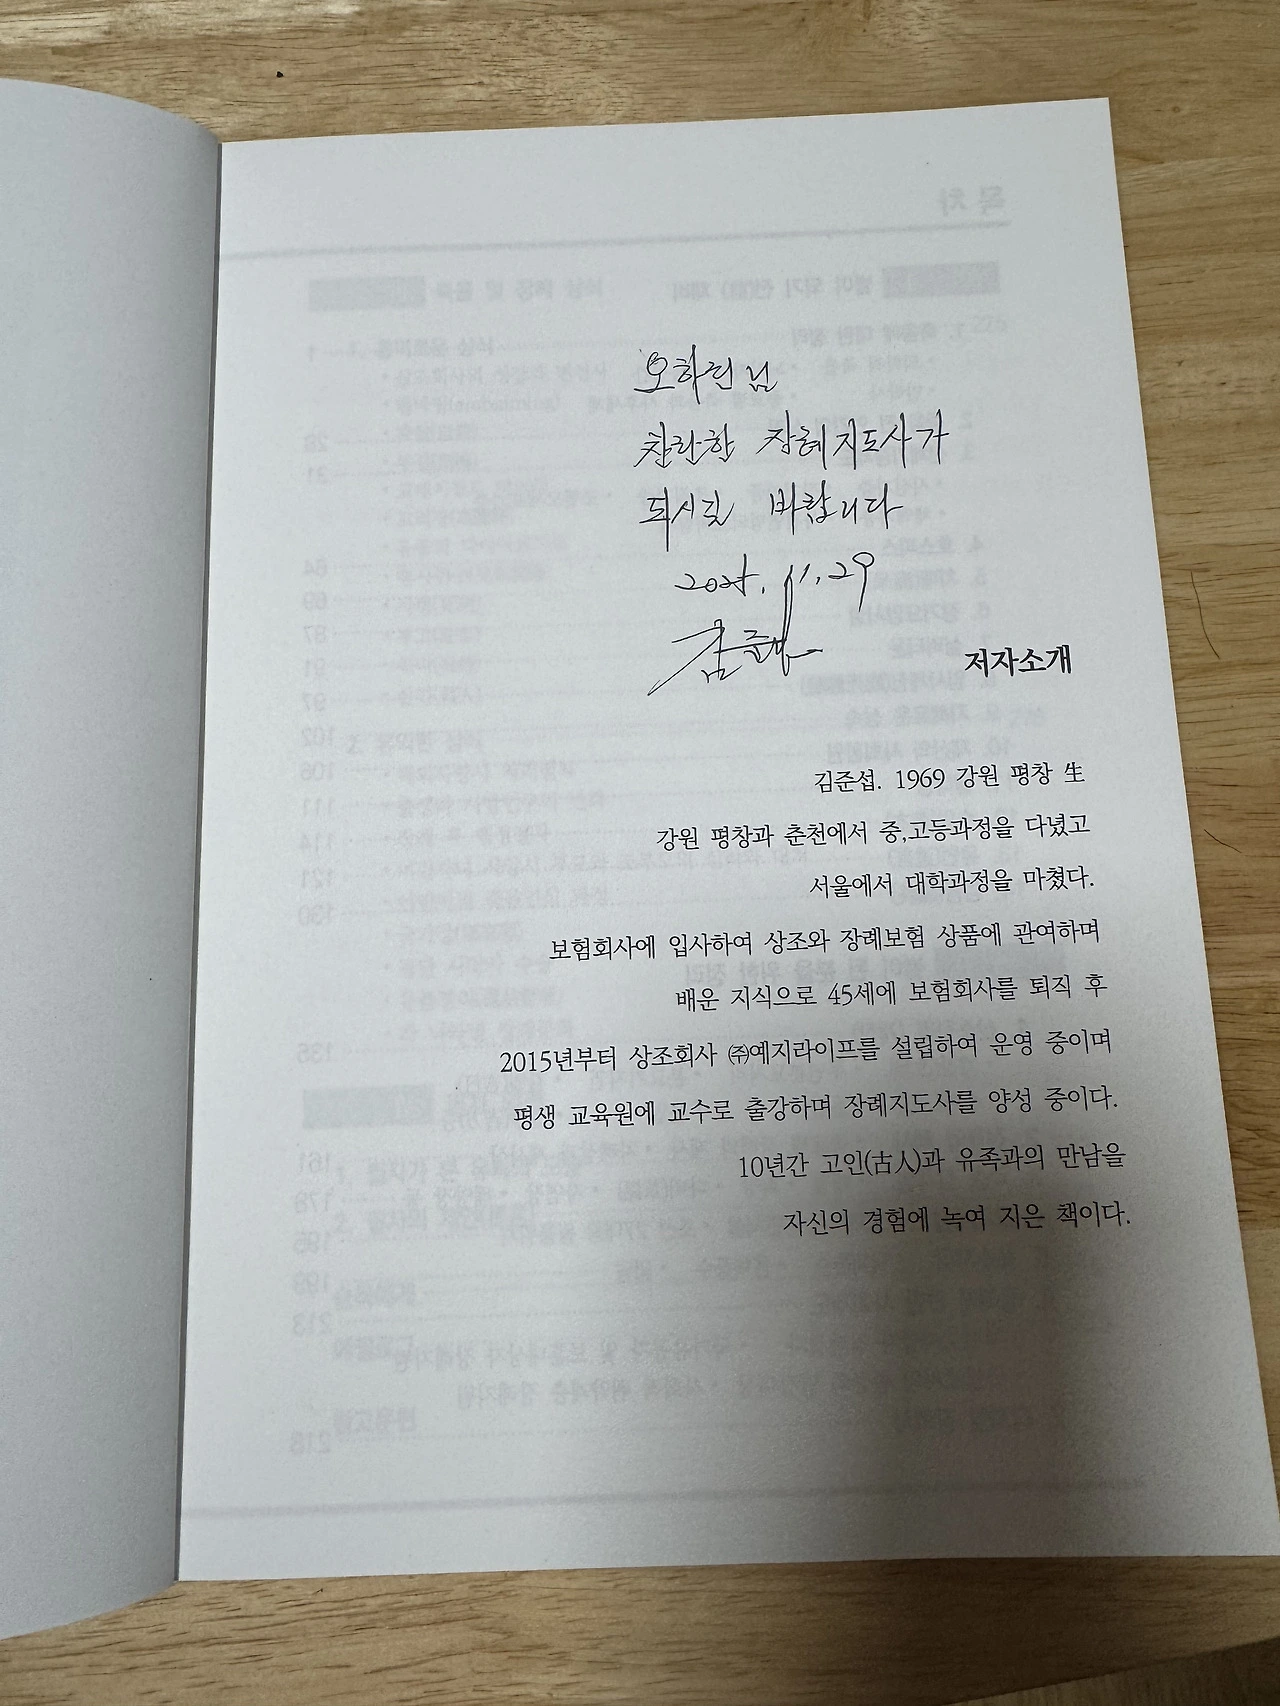 오하린님
찬란한 장례지도사가
되시길 바랍니다
2025. 11. 29
김준섭
저자소개
김준섭. 1969 강원 평창 生
강원 평창과 춘천에서 중,고등과정을 다녔고
서울에서 대학과정을 마쳤다.
보험회사에 입사하여 상조와 장례보험 상품에 관여하며
배운 지식으로 45세에 보험회사를 퇴직 후
2015년부터 상조회사 ㈜예지라이프를 설립하여 운영 중이며
평생 교육원에 교수로 출강하며 장례지도사를 양성 중이다.
10년간 고인(古人)과 유족과의 만남을
자신의 경험에 녹여 지은 책이다.